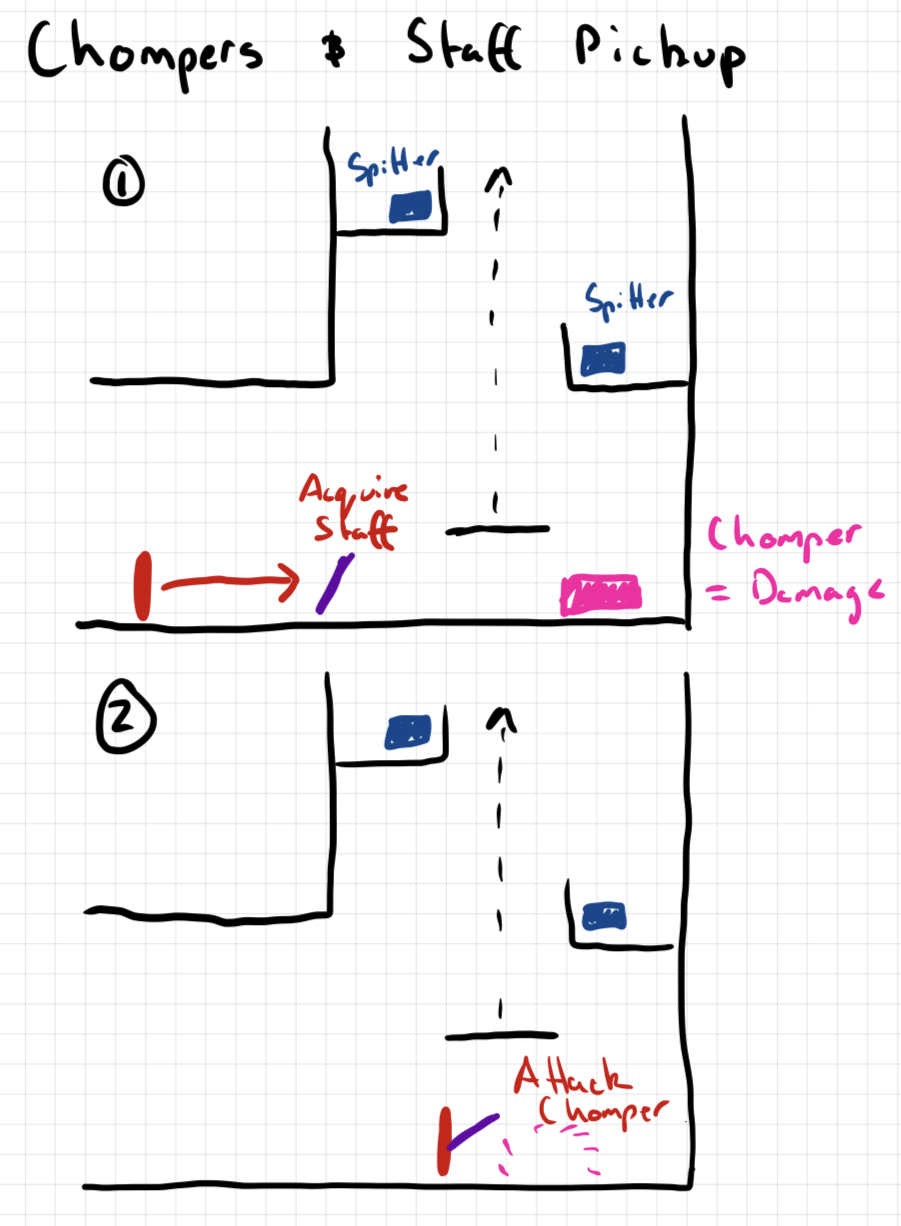 Chompers & Staff Pickup
1
Spitter
Spitter
Acquire
Staff
Chomper
= Damage
2
Attack
Chomper